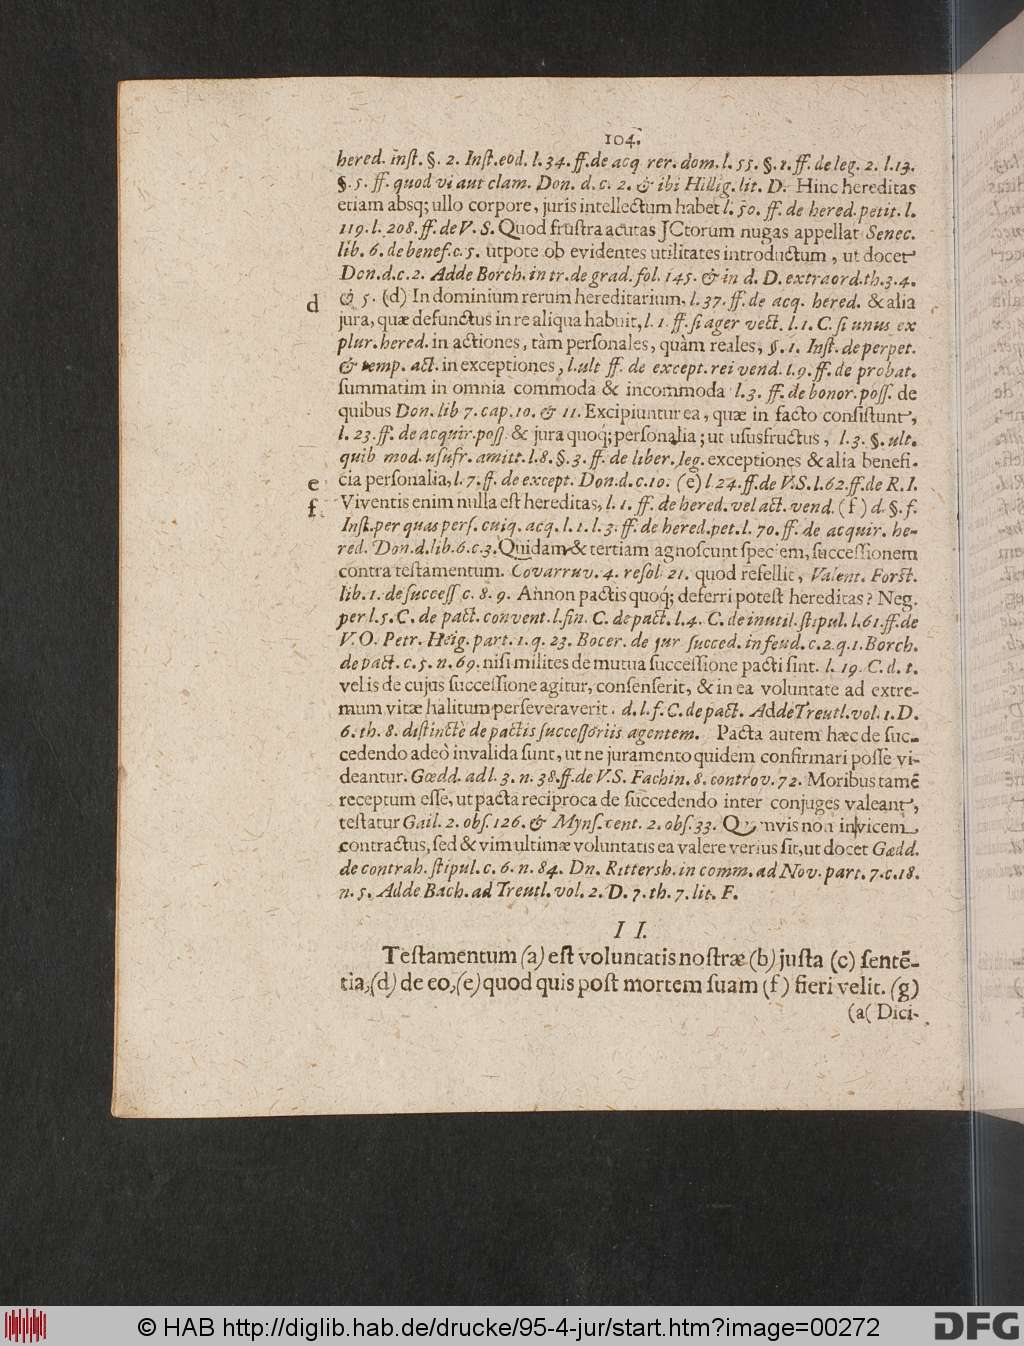 104.
hered. inst. §. 2. Inst. eod. l. 34. ff. de acq. rer. dom. l. 55. §. 1. ff. de leg. 2. l. 13.
§. 5. ff. quod vi aut clam. Don. d. c. 2. & ibi Hillig. lit. D. Hinc hereditas
etiam absq; ullo corpore, juris intellectum habet l. 50. ff. de hered. petit. l.
119. l. 208. ff. de V. S. Quod frustra acutas JCtorum nugas appellat Senec.
lib. 6. de benef. c. 5. utpote ob evidentes utilitates introductum, ut docet
Don. d. c. 2. Adde Borch. in tr. de grad. fol. 145. & in d. D. extraord. th. 3. 4.
d & 5. (d) In dominium rerum hereditarium, l. 37. ff. de acq. hered. & alia
jura, quæ defunctus in re aliqua habuit, l. 1. ff. si ager vect. l. 1. C. si unus ex
plur. hered. in actiones, tàm personales, quàm reales, §. 1. Inst. de perpet.
& temp. act. in exceptiones, l. ult ff. de except. rei vend. l. 9. ff. de probat.
summatim in omnia commoda & incommoda l. 3. ff. de bonor. poss. de
quibus Don. lib 7. cap. 10. & 11. Excipiuntur ea, quæ in facto consistunt,
l. 23. ff. de acquir. poss. & jura quoq; personalia; ut ususfructus, l. 3. §. ult.
quib mod. usufr. amitt. l. 8. §. 3. ff. de liber. leg. exceptiones & alia benefi-
e cia personalia, l. 7. ff. de except. Don. d. c. 10. (e) l 24. ff. de V. S. l. 62. ff. de R. I.
f Viventis enim nulla est hereditas, l. 1. ff. de hered. vel act. vend. (f) d. §. f.
Inst. per quas pers. cuiq. acq. l. 1. l. 3. ff. de hered. pet. l. 70. ff. de acquir. he-
red. Don. d. lib. 6. c. 3. Quidam & tertiam agnoscunt speciem, successionem
contra testamentum. Covarruv. 4. resol. 21. quod refellit, Valent. Forst.
lib. 1. de success c. 8. 9. Annon pactis quoq; deferri potest hereditas? Neg.
per l. 5. C. de pact. convent. l. fin. C. de pact. l. 4. C. de inutil. stipul. l. 61. ff. de
V. O. Petr. Heig. part. 1. q. 23. Bocer. de jur succed. in feud. c. 2. q. 1. Borch.
de pact. c. 5. n. 69. nisi milites de mutua successione pacti sint. l. 19. C. d. t.
vel is de cujus successione agitur, consenserit, & in ea voluntate ad extre-
mum vitæ halitum perseveraverit. d. l. f. C. de pact. Adde Treutl. vol. 1. D.
6. th. 8. distinctè de pactis successoriis agentem. Pacta autem hæc de suc-
cedendo adeò invalida sunt, ut ne juramento quidem confirmari posse vi-
deantur. Gœdd. ad l. 3. n. 38. ff. de V. S. Fachin. 8. controv. 72. Moribus tamẽ
receptum esse, ut pacta reciproca de succedendo inter conjuges valeant,
testatur Gail. 2. obs. 126. & Myns. cent. 2. obs. 33. Quamvis non in vicem
contractus, sed & vim ultimæ voluntatis ea valere verius sit, ut docet Gædd.
de contrah. stipul. c. 6. n. 84. Dn. Rittersh. in comm. ad Nov. part. 7. c. 18.
n. 5. Adde Bach. ad Treutl. vol. 2. D. 7. th. 7. lit. F.
I I.
Testamentum (a) est voluntatis nostræ (b) justa (c) sentẽ-
tia, (d) de eo, (e) quod quis post mortem suam (f) fieri velit. (g)
(a( Dici-
© HAB http://diglib.hab.de/drucke/95-4-jur/start.htm?image=00272
DFG